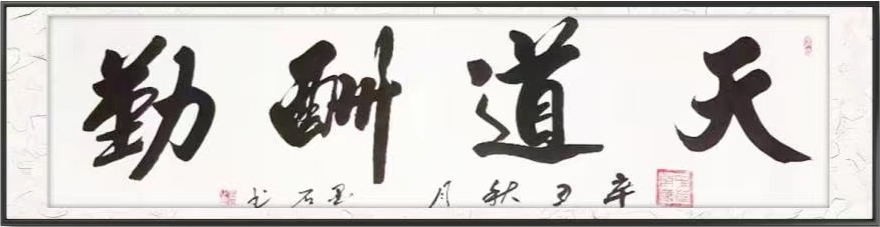 天道酬勤
辛丑秋月 墨石书